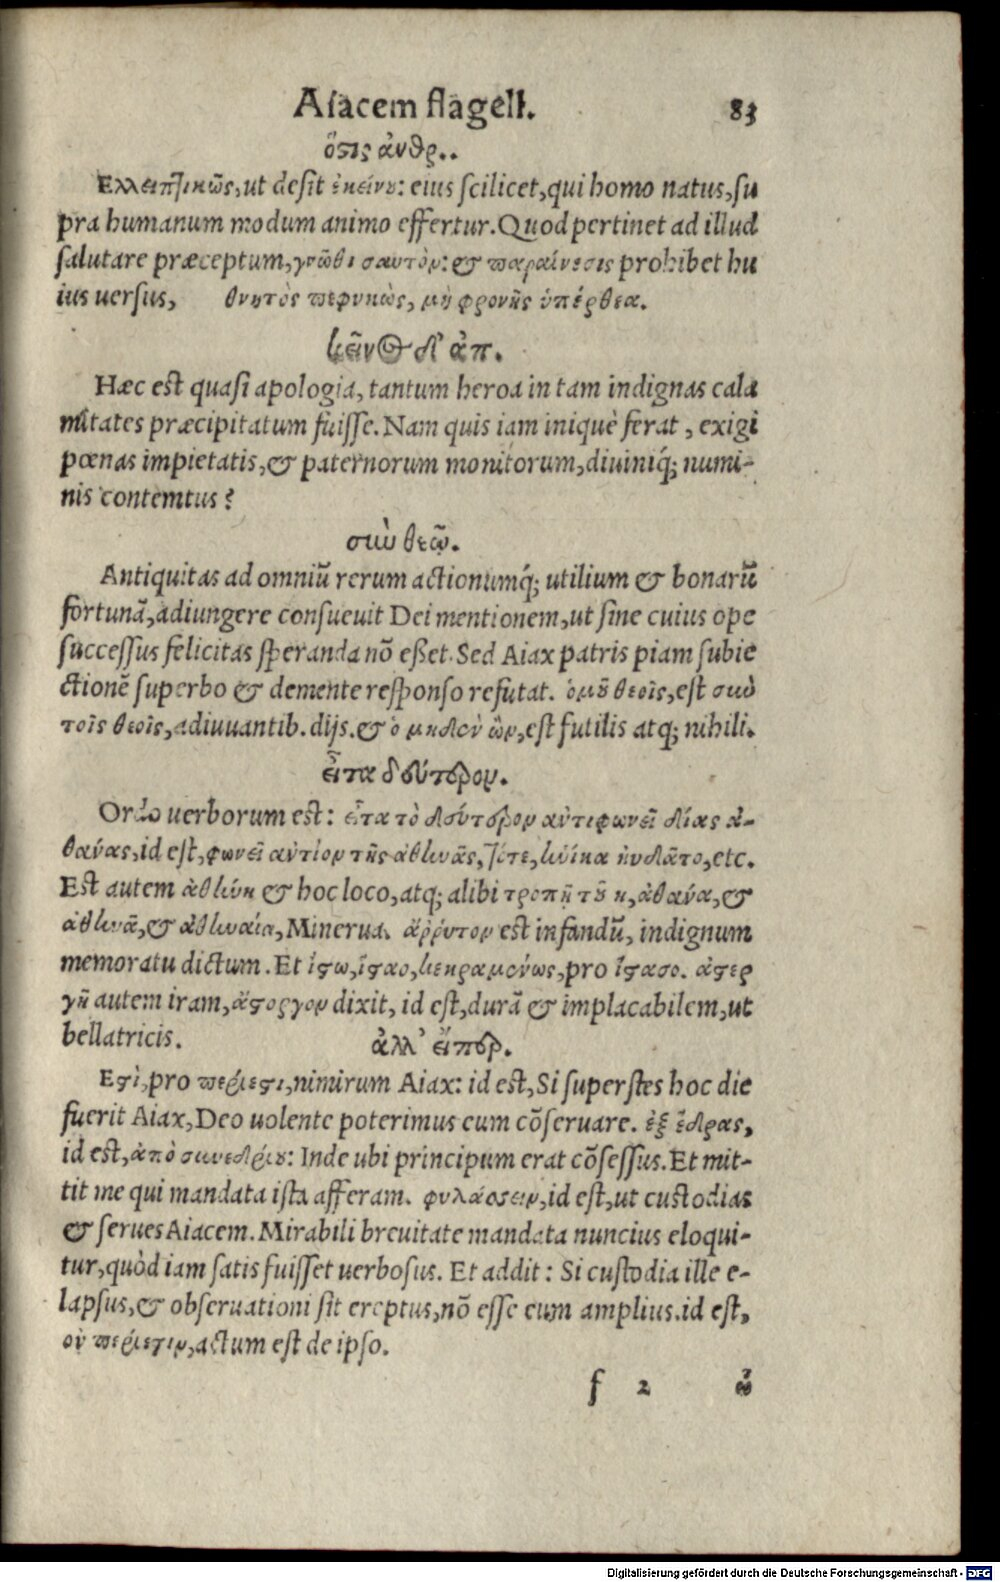 Aiacem flagell. 83
ὅστις ἀνθρ..
Ελλειπτικῶς, ut desit ἐκείνου: eius scilicet, qui homo natus, su
pra humanum modum animo effertur. Quod pertinet ad illud
salutare præceptum, γνῶθι σαυτὸν: & παραίνεσις prohibet hu
ius uersus, θνητὸς πεφυκὼς, μὴ φρονῇς ὑπέρθεα.
κεῖνος δ' ἀπ.
Hæc est quasi apologia, tantum heroa in tam indignas cala
mitates præcipitatum fuisse. Nam quis iam iniquè ferat, exigi
pœnas impietatis, & paternorum monitorum, diuiniq́; numi-
nis contemtus?
σὺν θεῷ.
Antiquitas ad omniū rerum actionumq́; utilium & bonarū
fortunā, adiungere consueuit Dei mentionem, ut sine cuius ope
successus felicitas speranda nō esset. Sed Aiax patris piam subie
ctionē superbo & demente responso refutat. ὁμοῦ θεοῖς, est σὺν
τοῖς θεοῖς, adiuuantib. dijs. & ὁ μηδὲν ὢν, est futilis atq; nihili.
εἶτα δεύτερον.
Ordo uerborum est: εἶτα τὸ δεύτερον ἀντιφωνεῖ δίας ἀ-
θάνας, id est, φωνεῖ ἀντίον τῆς ἀθηνᾶς, τότε, ἡνίκα ηὐδᾶτο, etc.
Est autem ἀθήνη & hoc loco, atq; alibi τροπῇ τοῦ η, ἀθάνα, &
ἀθηνᾶ, & ἀθηναία, Minerua. ἄῤῥητον est infandū, indignum
memoratu dictum. Et ἵστω, ἵσταο, κεκραμένως, pro ἵστασο. ἀστερ
γῆ autem iram, ἄστοργον dixit, id est, durā & implacabilem, ut
bellatricis. ἀλλ' εἴπερ.
Εστὶ, pro περίεστι, nimirum Aiax: id est, Si superstes hoc die
fuerit Aiax, Deo uolente poterimus eum cōseruare. ἐξ ἕδρας,
id est, ἀπὸ συνεδρίου: Inde ubi principum erat cōsessus. Et mit-
tit me qui mandata ista afferam. φυλάσσειν, id est, ut custodias
& serues Aiacem. Mirabili breuitate mandata nuncius eloqui-
tur, quòd iam satis fuisset uerbosus. Et addit: Si custodia ille e-
lapsus, & obseruationi sit ereptus, nō esse eum amplius. id est,
οὐ περίεστιν, actum est de ipso.
f 2 ὦ
Digitalisierung gefördert durch die Deutsche Forschungsgemeinschaft - DFG